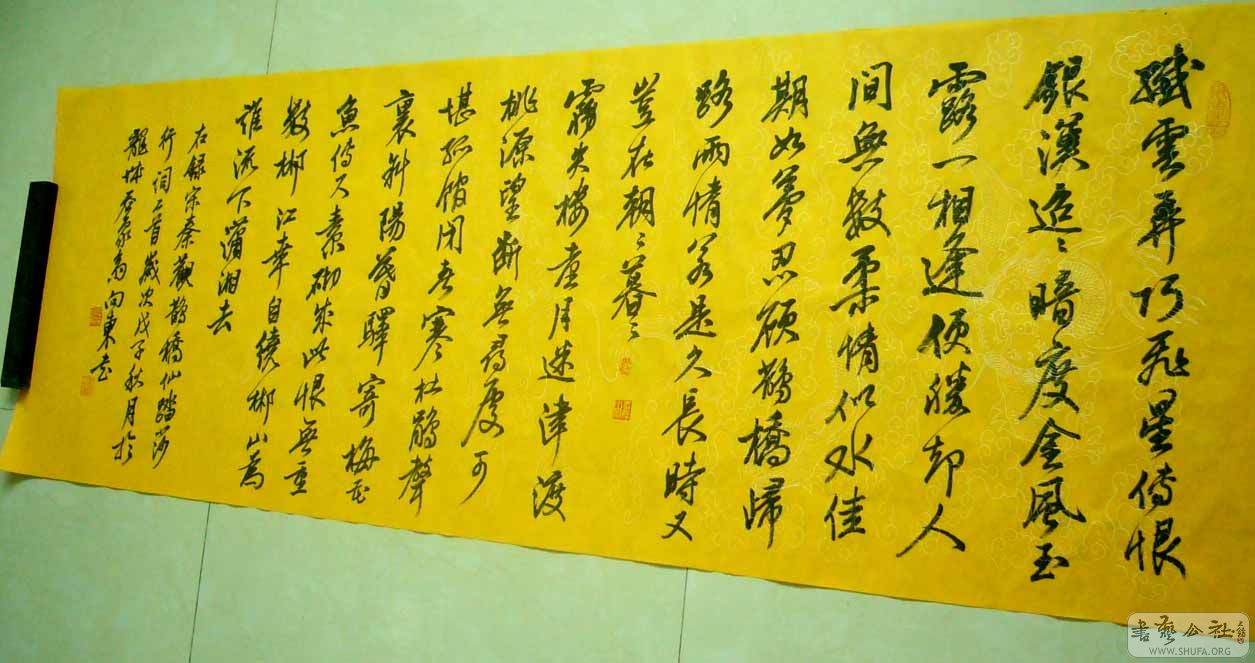 纖雲弄巧飛星傳恨
銀漢迢〻暗度金風玉
露一相逢便勝却人
間無數柔情似水佳
期如夢忍顧鵲橋歸
路兩情若是久長時又
豈在朝〻暮〻
霧失樓臺月迷津渡
桃源望斷無尋處可
堪孤館閉春寒杜鵑聲
裏斜陽暮驛寄梅花
魚傳尺素砌成此恨無重
數郴江幸自繞郴山為
誰流下瀟湘去
右録宋秦觀鵲橋仙踏莎
行詞二首歲次戊子秋月於
龍城向東書
書藝公社
WWW.SHUFA.ORG